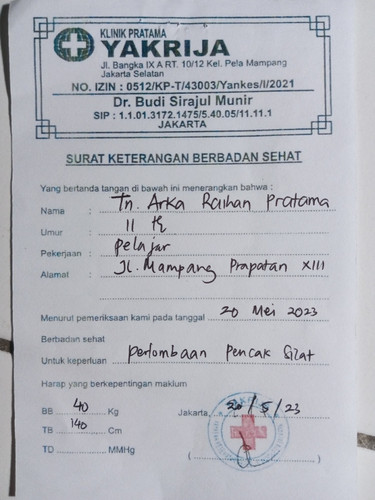 KLINIK PRATAMA
YAKRIJA
Jl. Bangka IX A RT. 10/12 Kel. Pela Mampang
Jakarta Selatan
NO. IZIN : 0512/KP-T/43003/Yankes/I/2021
Dr. Budi Sirajul Munir
SIP : 1.1.01.3172.1475/5.40.05/11.11.1
JAKARTA
SURAT KETERANGAN BERBADAN SEHAT
Yang bertanda tangan di bawah ini menerangkan bahwa :
Nama : Tn. Arka Raihan Pratama
Umur : 11 th
Pekerjaan : pelajar
Alamat : Jl. Mampang Prapatan XIII
Menurut pemeriksaan kami pada tanggal 20 Mei 2023
Berbadan sehat
Untuk keperluan perlombaan Pencak Silat
Harap yang berkepentingan maklum
BB 40 Kg Jakarta, 20/5/23
TB 140 Cm
TD MMHg ( )